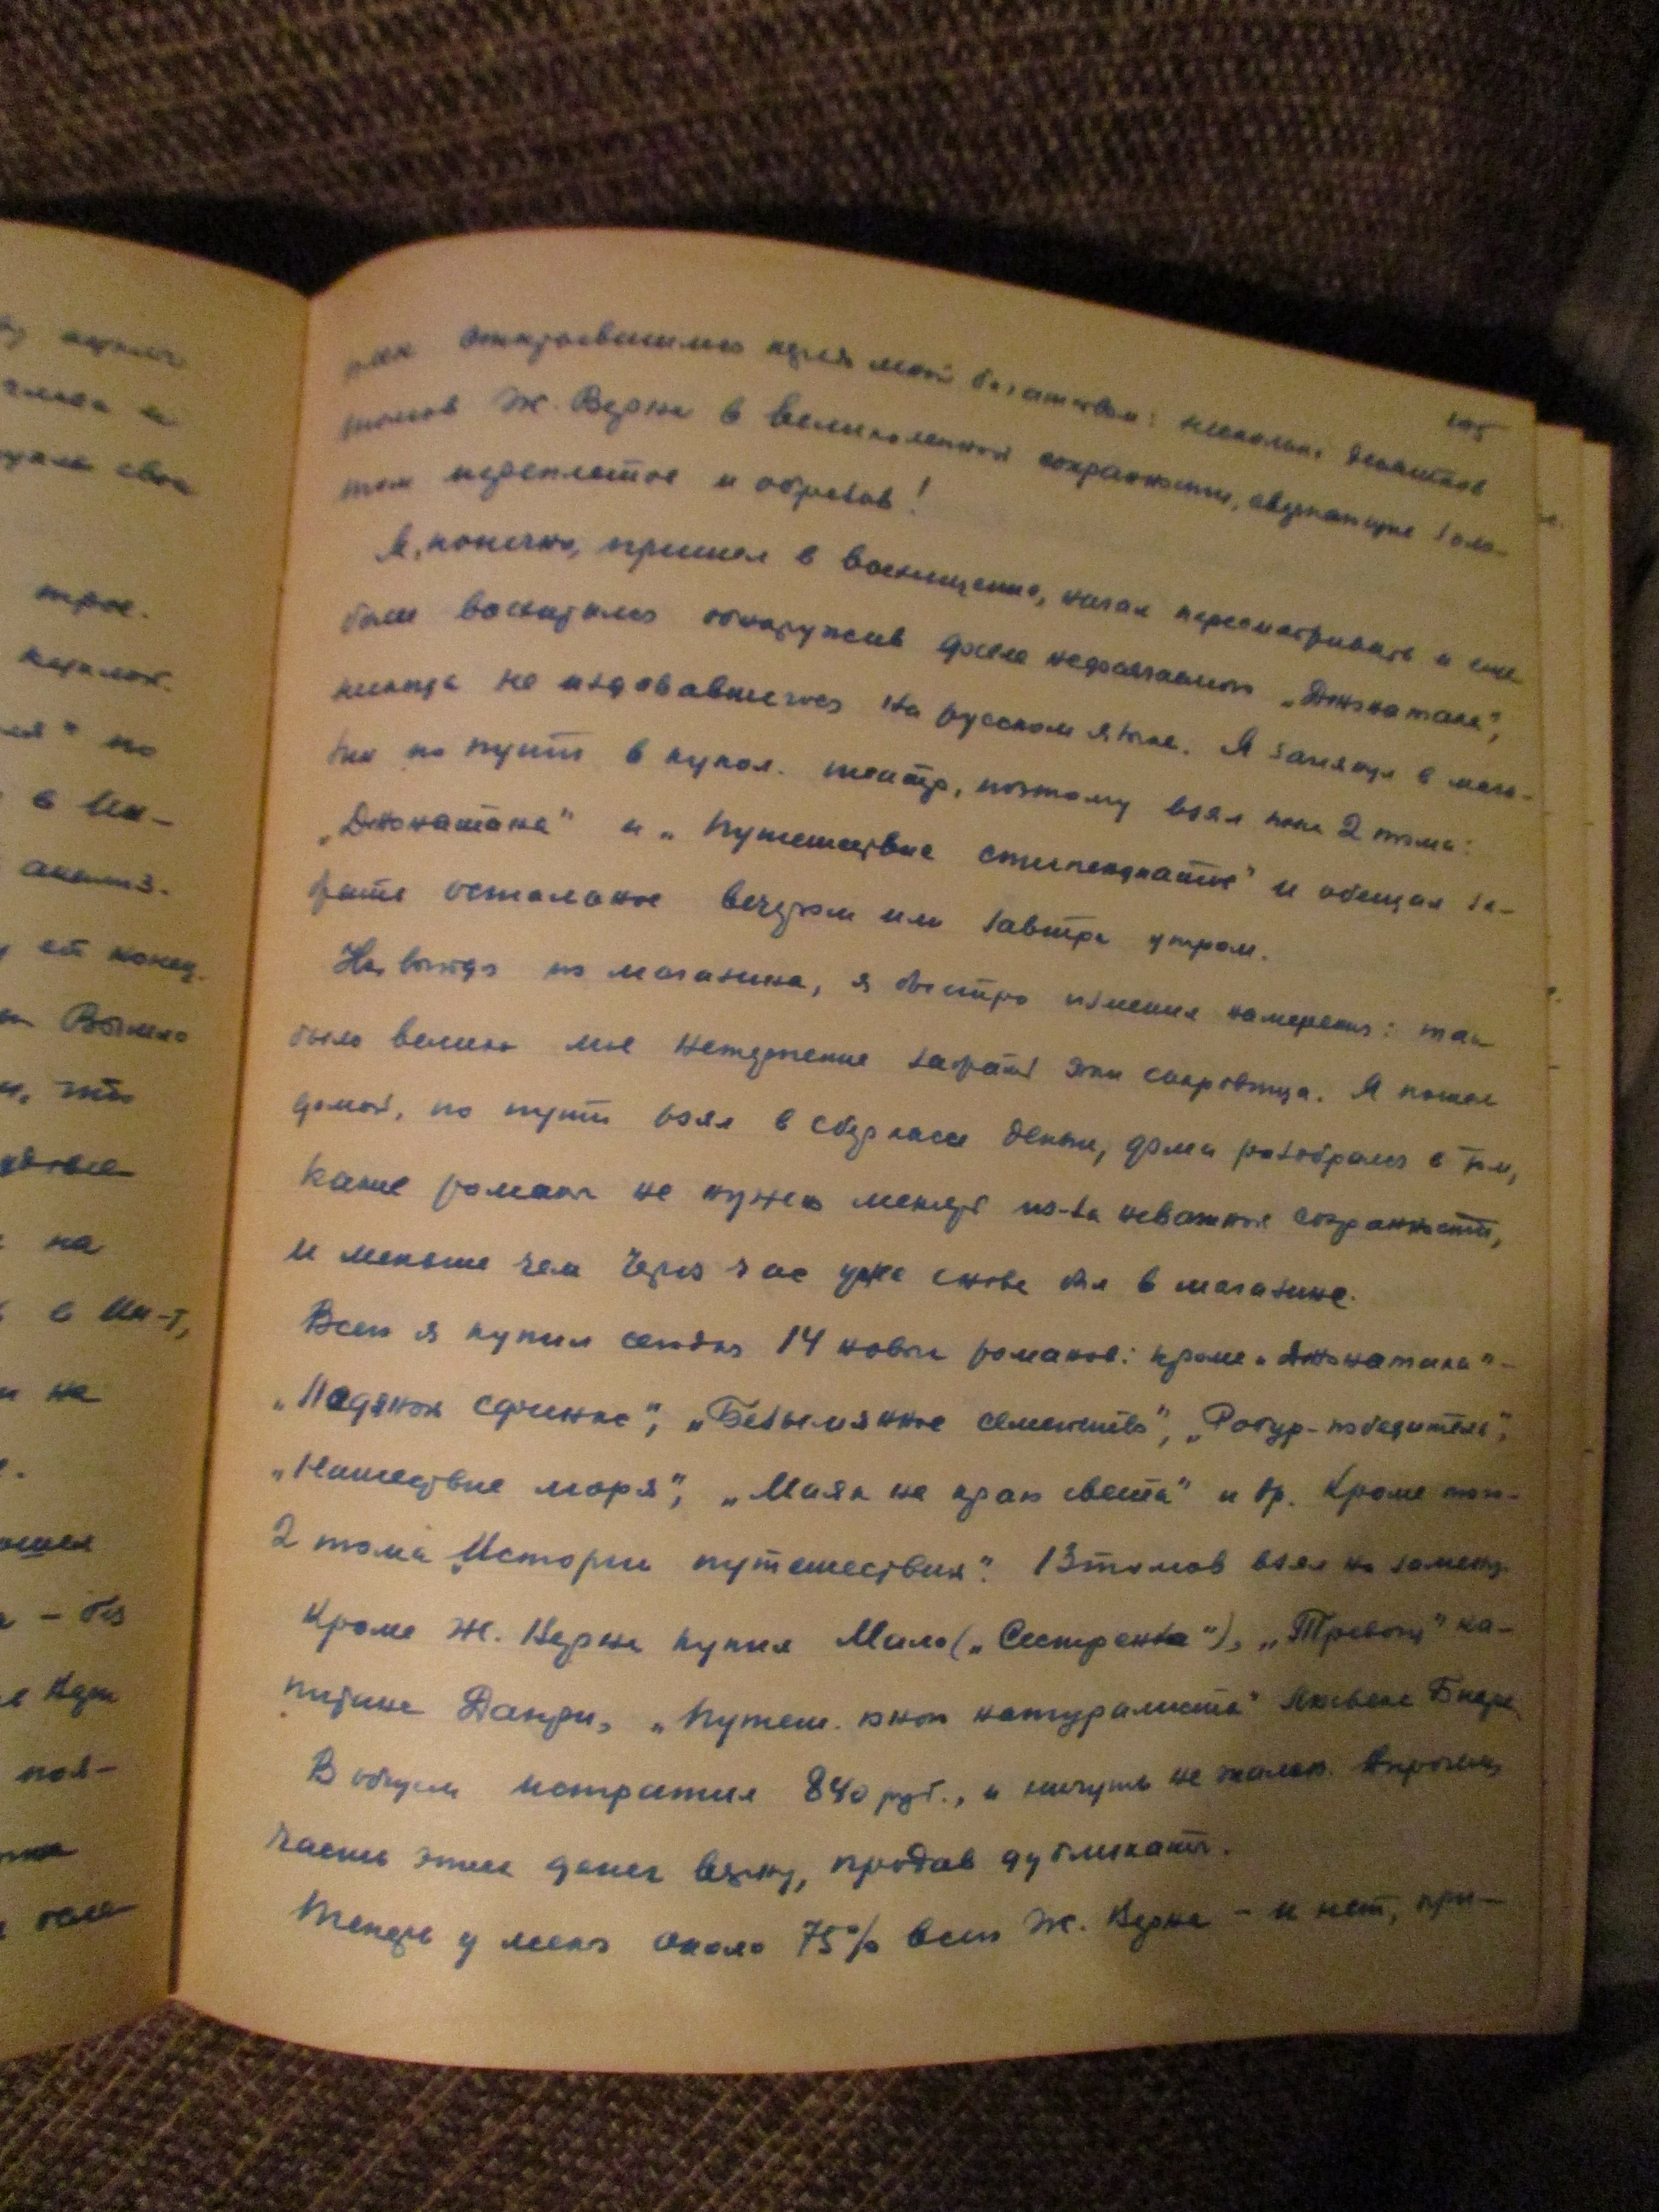 ру купил
глава и
свои
трое.
купил.
по
в Ин-
анализ.
ей конец.
Вышло
что
на
в Ин-т,
и не
- без
поя-
105
мною богатством: несколько десятков
томов Ж. Верна в великолепной сохранности, сверкающие золо-
том переплетов и обрезов!
Я, конечно, пришел в восхищение, начал пересматривать и еще
более восхитился обнаружив среди "Джонатана",
никогда не издававшегося на русском языке. Я заглянул в мага-
зин по пути в кукол. театр, поэтому взял пока 2 тома:
"Джонатана" и "Путешествие стипендиатов" и обещал за-
брать остальное вечером или завтра утром.
Но, выйдя из магазина, я быстро изменил намерения: так
было велико мое нетерпение забрать эти сокровища. Я пошел
домой, по пути взял в сберкассе деньги, дома разобрался в том,
какие романы не нужно менять из-за неважной сохранности,
и меньше чем через час уже снова был в магазине.
Всего я купил сегодня 14 новых романов: кроме "Джонатана" -
"Ледяной сфинкс", "Безымянное семейство", "Робур-победитель",
"Нашествие моря", "Маяк на краю света" и др. Кроме того -
2 тома "Истории путешествий". 13 томов взял на замену.
Кроме Ж. Верна купил Мало ("Сестренка"), "Тревоги" ка-
питана Данри, "Путеш. юного натуралиста" Люсьена Биар
В общем истратил 840 руб., и ничуть не жалею. Впрочем,
часть этих денег верну, продав дубликаты.
Теперь у меня около 75% всего Ж. Верна - и нет, при-